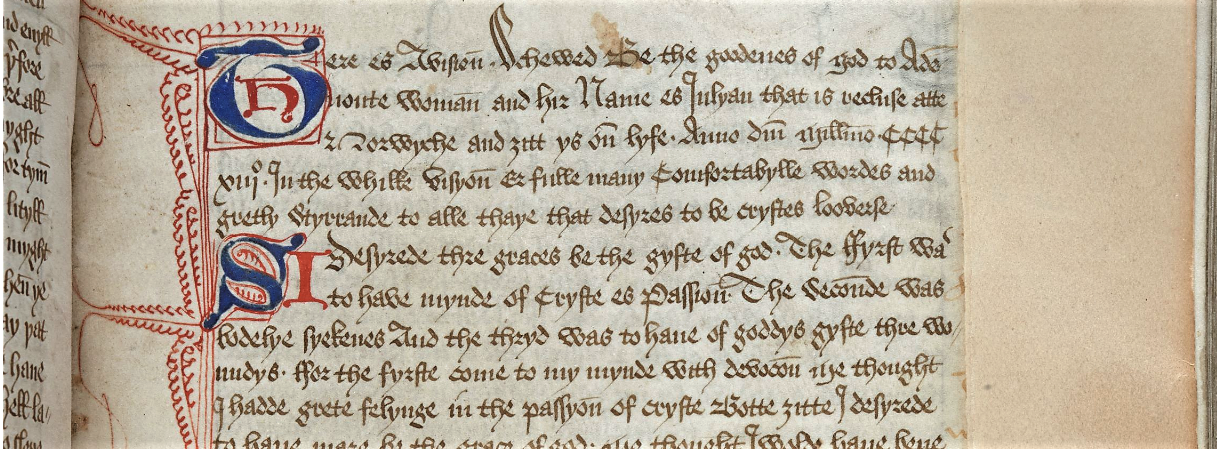 Here es Avisioun Schewed Be the goodenes of god to Ade
uoute Womann and hir Name es Julyan that is recluse atte
Norwyche and ȝitt ys oun lyfe. Anno dm̄ millmo CCCC
xiijº. In the Whilke Visyoun Er fulle many Comfortabylle Wordes and
gretly Styrrande to alle thaye that desyres to be crystes looverse
I Desyrede thre graces be the gyfte of god. The ffyrst was
to have mynde of Cryste es Passioun The Secounde was
bodelye syekenes And the thryd was to haue of goddys gyfte thre wo
undys. ffor the fyrste come to my mynde with devocoun me thought
I hadde grete felynge in the passyoun of cryste Botte ȝitte I desyrede
to haue mare be the grace of god. me thought I wolde haue bene